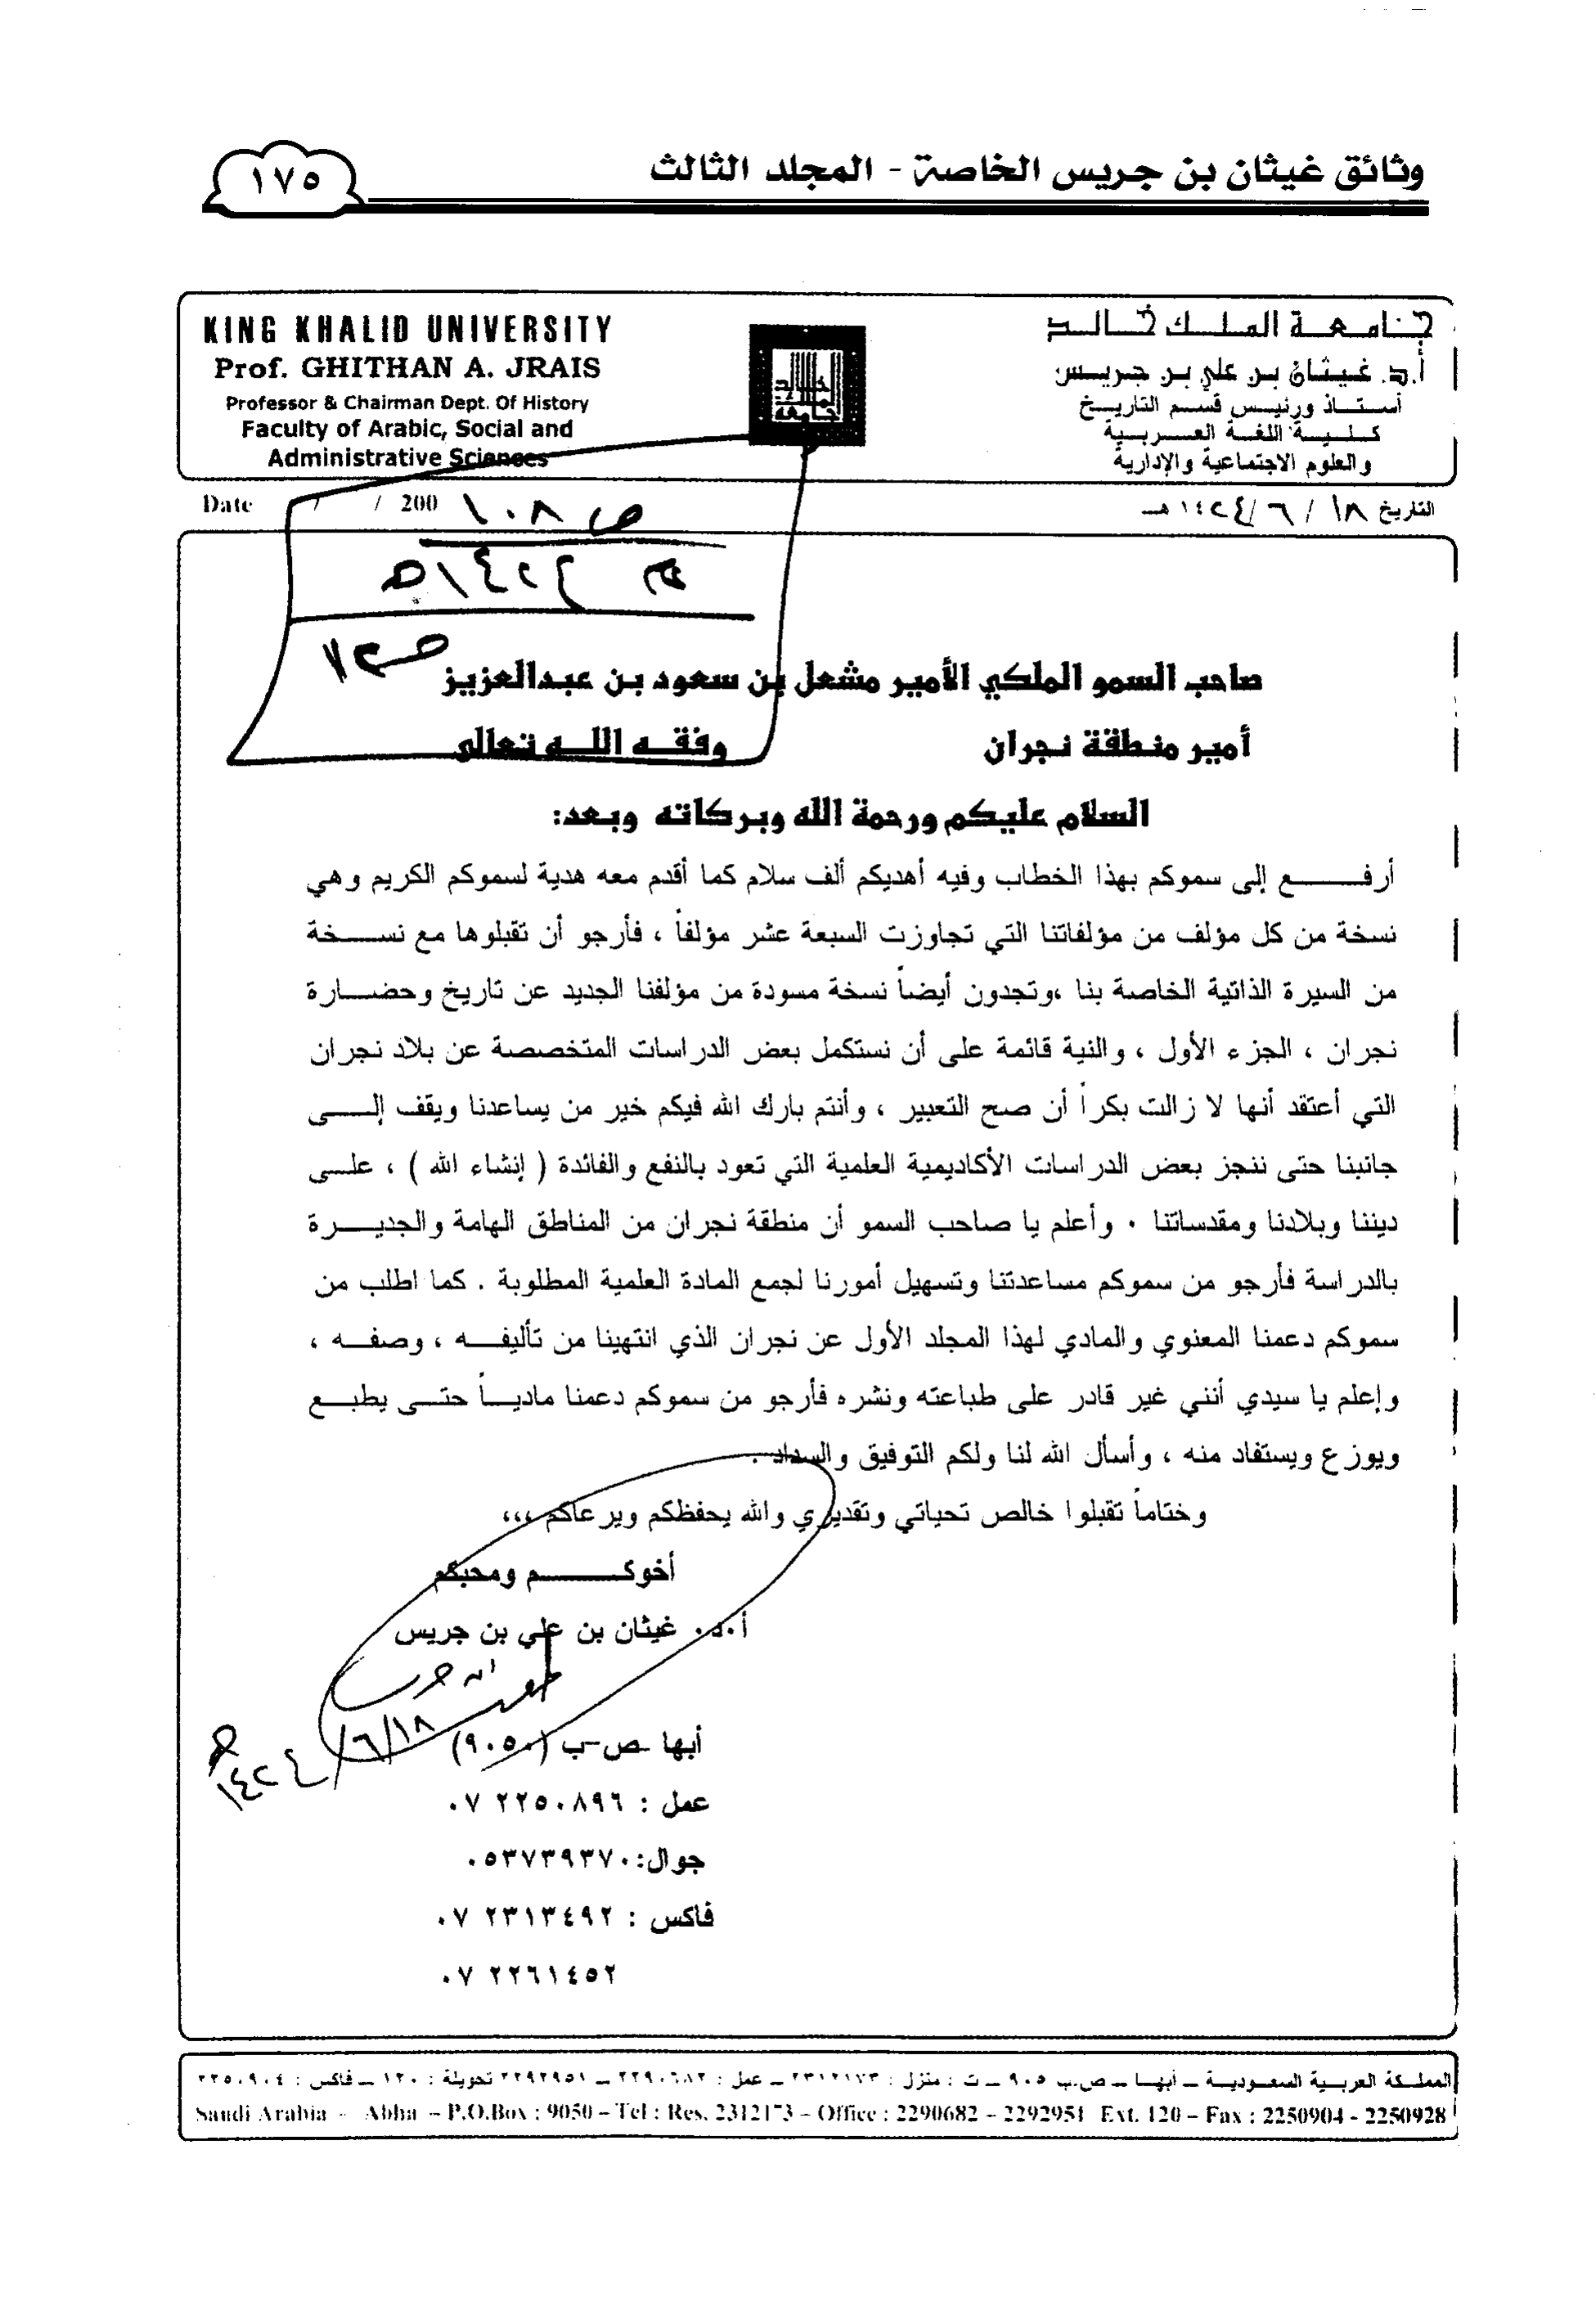 وثائق غيثان بن جريس الخاصة - المجلد الثالث
١٧٥
جامعة الملك خالد
أ.د. غيثان بن علي بن جريس
أستاذ ورئيس قسم التاريخ
كلية اللغة العربية
والعلوم الاجتماعية والإدارية
KING KHALID UNIVERSITY
Prof. GHITHAN A. JRAIS
Professor & Chairman Dept. Of History
Faculty of Arabic, Social and
Administrative Sciences
التاريخ ١٨ / ٦ / ١٤٢٤ هـ
Date / / 200
ص ١٠٨
م ١٤٢٤هـ
صاحب السمو الملكي الأمير مشعل بن سعود بن عبدالعزيز
أمير منطقة نجران وفقه الله تعالى
السلام عليكم ورحمة الله وبركاته وبعد:
أرفع إلى سموكم بهذا الخطاب وفيه أهديكم ألف سلام كما أقدم معه هدية لسموكم الكريم وهي
نسخة من كل مؤلف من مؤلفاتنا التي تجاوزت السبعة عشر مؤلفاً ، فأرجو أن تقبلوها مع نسخة
من السيرة الذاتية الخاصة بنا ،وتجدون أيضاً نسخة مسودة من مؤلفنا الجديد عن تاريخ وحضارة
نجران ، الجزء الأول ، والنية قائمة على أن نستكمل بعض الدراسات المتخصصة عن بلاد نجران
التي أعتقد أنها لا زالت بكراً أن صح التعبير ، وأنتم بارك الله فيكم خير من يساعدنا ويقف إلى
جانبنا حتى ننجز بعض الدراسات الأكاديمية العلمية التي تعود بالنفع والفائدة ( إنشاء الله ) ، على
ديننا وبلادنا ومقدساتنا . وأعلم يا صاحب السمو أن منطقة نجران من المناطق الهامة والجديرة
بالدراسة فأرجو من سموكم مساعدتنا وتسهيل أمورنا لجمع المادة العلمية المطلوبة . كما اطلب من
سموكم دعمنا المعنوي والمادي لهذا المجلد الأول عن نجران الذي انتهينا من تأليفه ، وصفه ،
وإعلم يا سيدي أنني غير قادر على طباعته ونشره فأرجو من سموكم دعمنا مادياً حتى يطبع
ويوزع ويستفاد منه ، وأسأل الله لنا ولكم التوفيق والسداد .
وختاماً تقبلوا خالص تحياتي وتقديري والله يحفظكم ويرعاكم ،،،
أخوكم ومحبكم
أ.د. غيثان بن علي بن جريس
١٨/٦/١٤٢٤هـ
أبها ص-ب (٩٠٥٠)
عمل : ٢٢٥٠٨٩٦ ٠٧
جوال:٠٥٣٧٣٩٣٧٠
فاكس : ٢٣١٣٤٩٢ ٠٧
٢٢٦١٤٥٢ ٠٧
المملكة العربية السعودية – أبها – ص.ب ٩٠٥ – ت : منزل : ٢٣١٢١٧٣ – عمل : ٢٢٩٠٦٨٢ – ٢٢٩٢٩٥١ تحويلة : ١٢٠ – فاكس : ٢٢٥٠٩٠٤
Saudi Arabia – Abha – P.O.Box : 9050 – Tel : Res. 2312173 – Office : 2290682 – 2292951 Ext. 120 – Fax : 2250904 - 2250928